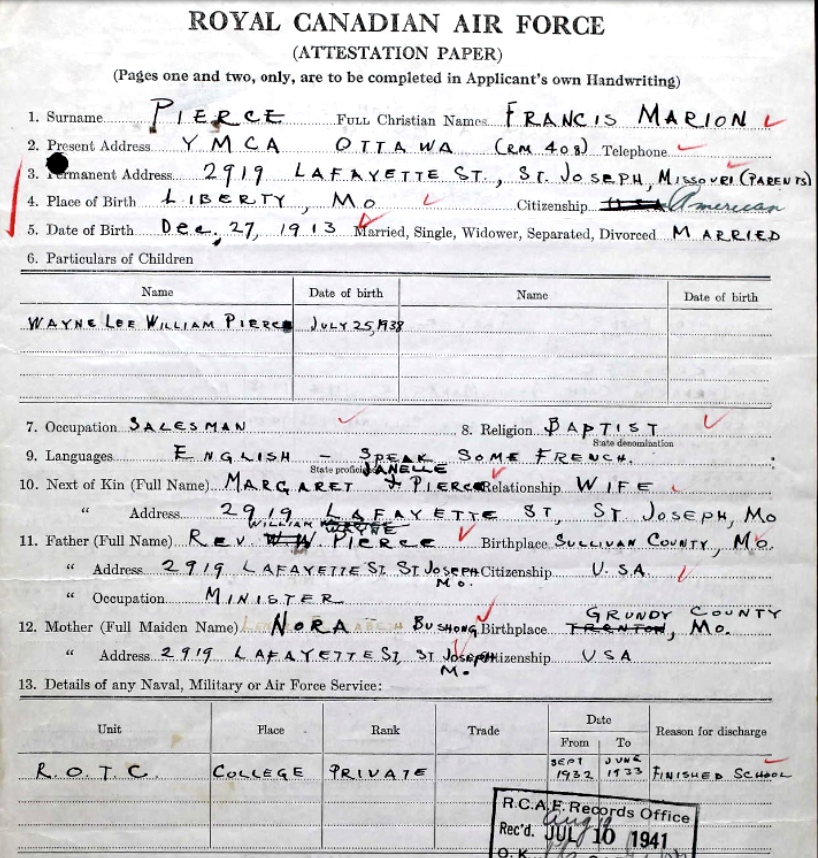 ROYAL CANADIAN AIR FORCE
(ATTESTATION PAPER)
(Pages one and two, only, are to be completed in Applicant's own Handwriting)
1. Surname PIERCE FULL Christian Names FRANCIS MARION
2. Present Address YMCA OTTAWA (RM 408) Telephone
3. Permanent Address 2919 LAFAYETTE ST., ST. JOSEPH, MISSOURI (PARENTS)
4. Place of Birth LIBERTY, MO Citizenship USA American
5. Date of Birth Dec. 27, 1913 Married, Single, Widower, Separated, Divorced MARRIED
6. Particulars of Children
Name Date of birth Name Date of birth
WAYNE LEE WILLIAM PIERCE JULY 25, 1938
7. Occupation SALESMAN 8. Religion BAPTIST
State denomination
9. Languages ENGLISH - SPEAK SOME FRENCH.
JANELLE
10. Next of Kin (Full Name) MARGARET J PIERCE Relationship WIFE
" Address 2919 LAFAYETTE ST, ST. JOSEPH, MO
WILLIAM WAYNE
11. Father (Full Name) REV. W W PIERCE Birthplace SULLIVAN COUNTY, MO.
" Address 2919 LAFAYETTE ST. ST JOSEPH MO. Citizenship U.S.A.
" Occupation MINISTER
GRUNDY COUNTY
12. Mother (Full Maiden Name) NORA BUSHONG Birthplace TRENTON, MO.
" Address 2919 LAFAYETTE ST, ST JOSEPH MO. Citizenship USA
13. Details of any Naval, Military or Air Force Service:
Unit Place Rank Trade Date Reason for discharge
From To
R.O.T.C. COLLEGE PRIVATE SEPT 1932 JUNE 1933 FINISHED SCHOOL
R.C.A.F. Records Office
Aug
Rec'd. JUL 10 1941
O.K.